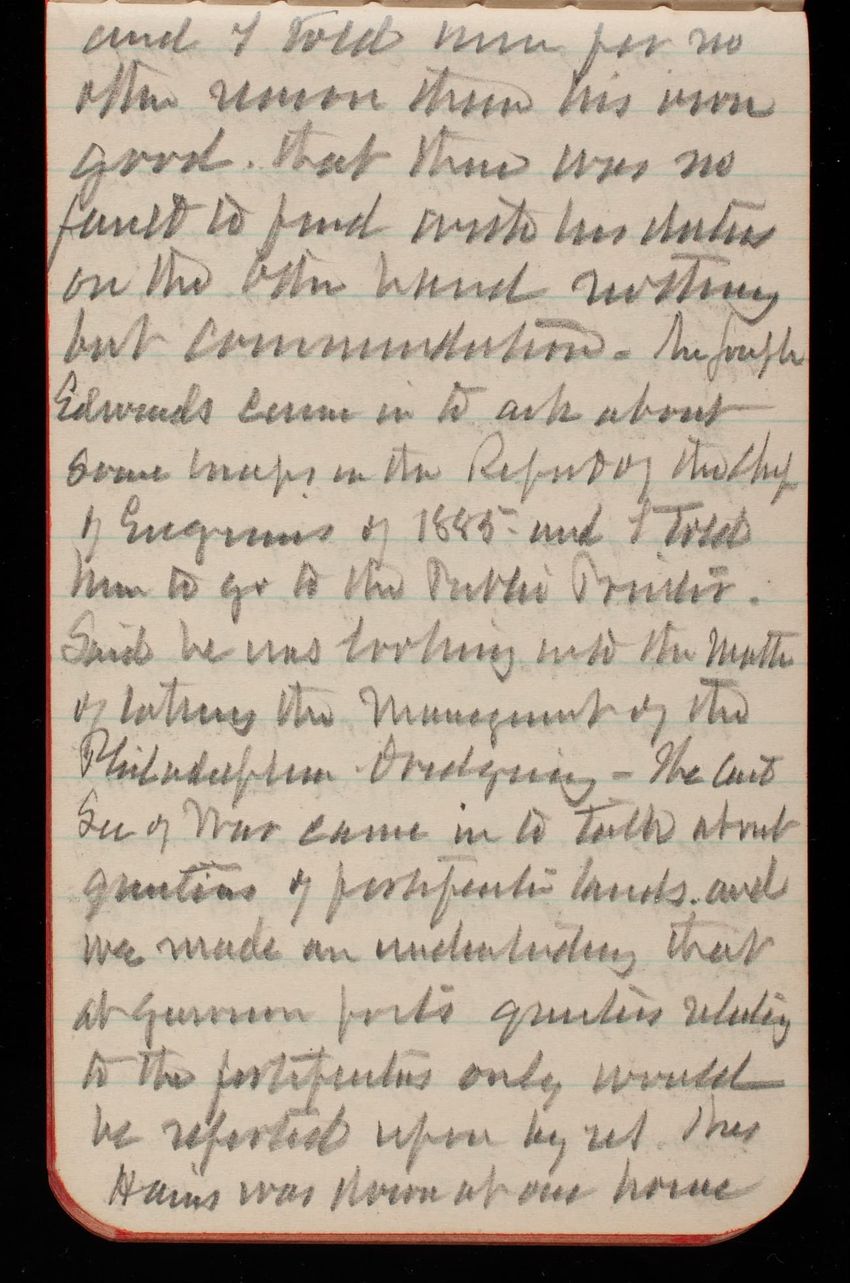 and I told him for no
other reason than his own
good. that there was no
fault to find with his duties
on the other hand nothing
but commendation - Mr Joseph
Edwards came in to ask about
some maps in the Report of the Chf
of Engineers of 1885 - and I told
him to go to the Public Printer.
Said he was looking into the matter
of letting the Management of the
Philadelphia Dredging - The
Sec of War came in to talk about
questions of fortificatn lands. and
we made an understanding that
at Garrison forts questions relating
to the fortifications only would
be reported upon by us. Mrs
Hains was down at our house